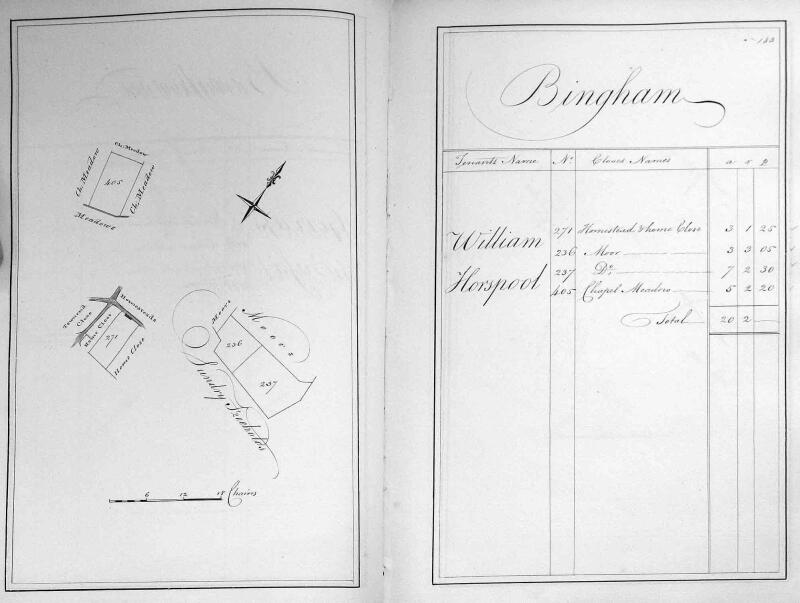 Ch. Meadow
Ch. Meadow
405
Ch. Meadow
Meadows
Homesteads
Townend Close
Home Close
271
Home Close
Moors
Moors
236
237
Sundry Freeholds
6 12 18 Chains
183
Bingham
Tenants Name No. Closes Names a r p
William Horspool
271 Homestead & home Close 3 1 25
236 Moor 3 3 05
237 Do. 7 2 30
405 Chapel Meadow 5 2 20
Total 20 2 —